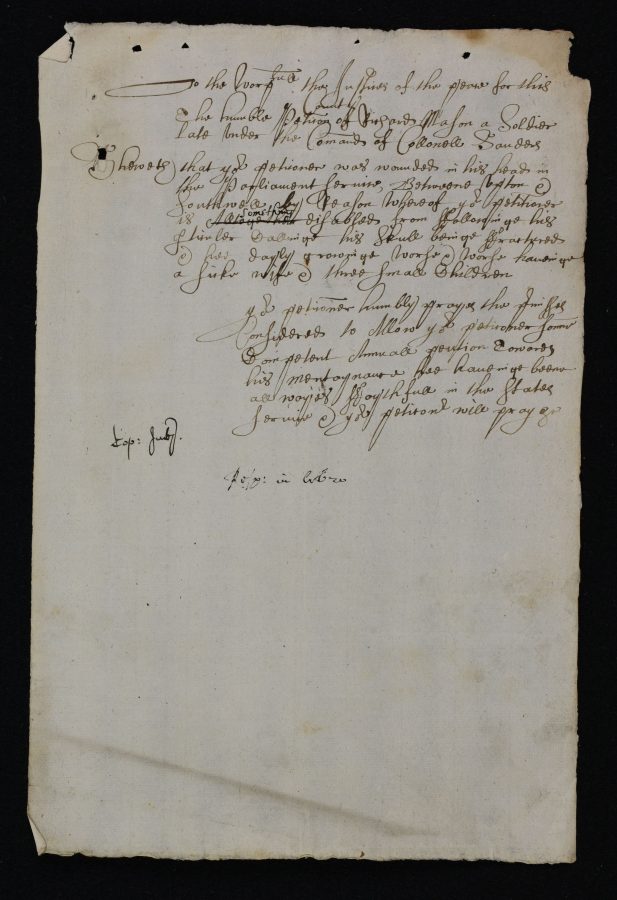 To the Worpfull the Justices of the peace for this
County
The humble Petition of Richard Mason a Soldier
late under the Comand of Collonell Sanders
Sheweth that yor petitioner was wounded in his head in
the Parliament service, Betweene &
Southwell by Reason whereof yor petitioner
somthing
is disabled from followinge his
Callinge his skull beinge fractured
& hee dayly growinge worse & worse haveinge
a sicke wife & three small Children
yor petitioner humbly prayes the
Considered to Allow yor petitioner some
Competent Annuall pention towards
his mentaynance hee haveinge beene
all wayes faythfull in the States
service & yor petitionr will pray &c
Cop:
in libro